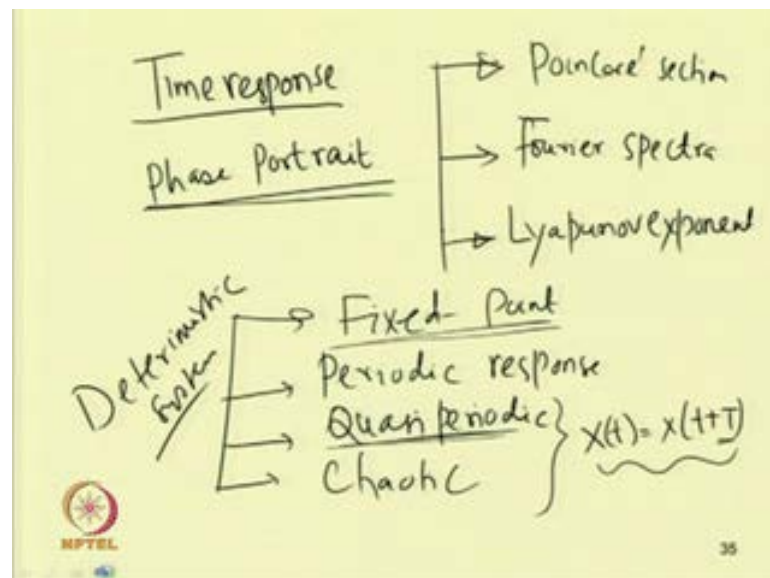 Time response
Phase Portrait
Poincare' section
Fourier spectra
Lyapunov exponent
Deterministic
System
Fixed Point
Periodic response
Quasi periodic
Chaotic
X(t) = X(t+T)
NPTEL
35